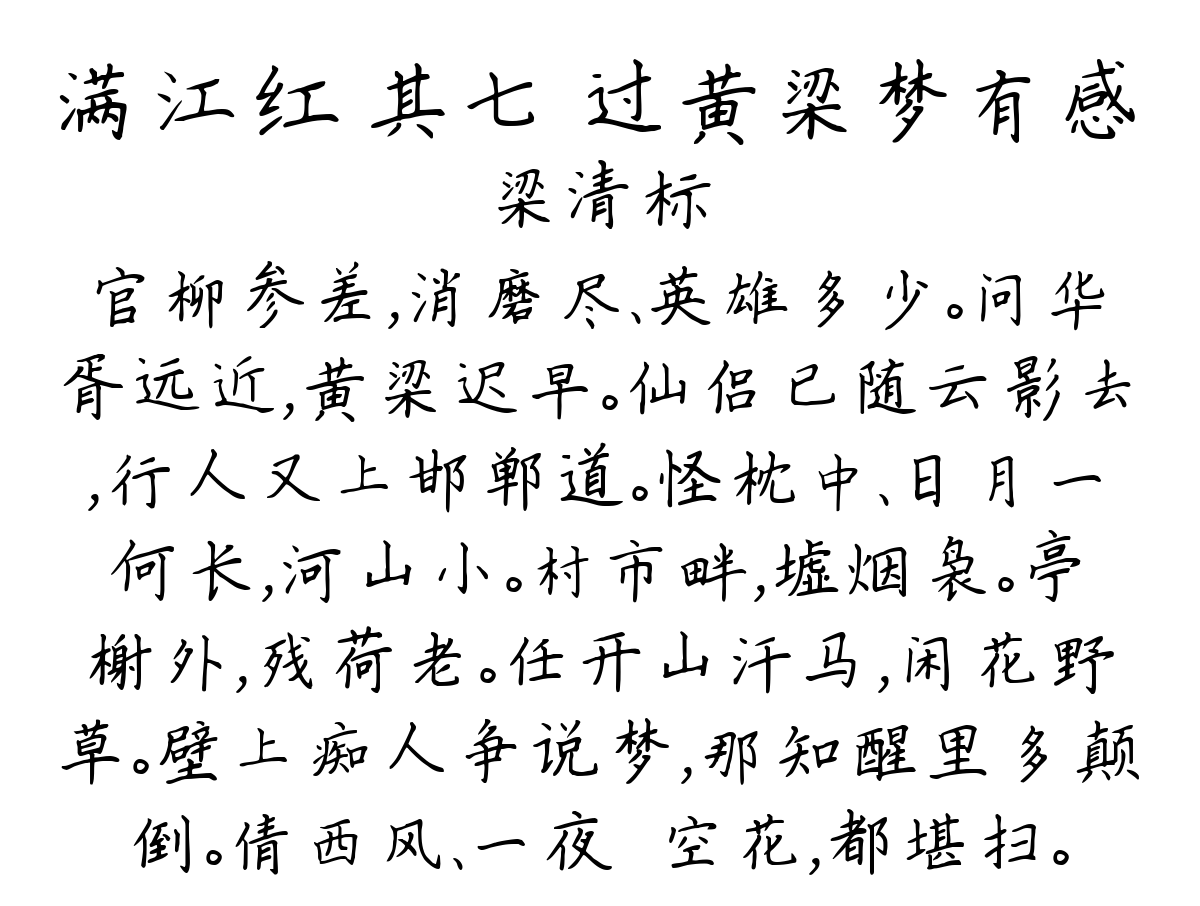 满江红 其七 过黄梁梦有感
梁清标
官柳参差,消磨尽、英雄多少。问华
胥远近,黄梁迟早。仙侣已随云影去
,行人又上邯郸道。怪枕中、日月一
何长,河山小。村市畔,墟烟袅。亭
榭外,残荷老。任开山汗马,闲花野
草。壁上痴人争说梦,那知醒里多颠
倒。倩西风、一夜 空花,都堪扫。